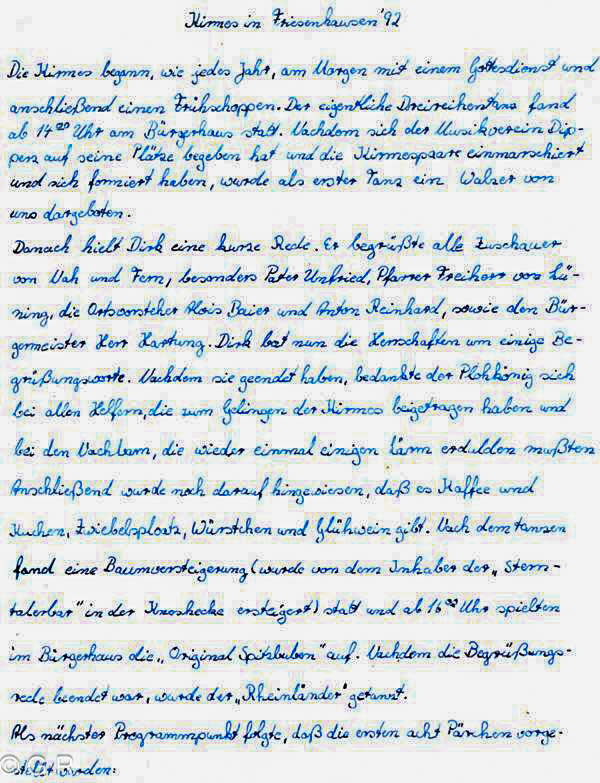 Kirmes in Friesenhausen '92
Die Kirmes begann, wie jedes Jahr, am Morgen mit einem Gottesdienst und
anschließend einen Frühschoppen. Der eigentliche Dreireihentanz fand
ab 14²⁰ Uhr am Bürgerhaus statt. Nachdem sich der Musikverein Dip-
perz auf seine Plätze begeben hat und die Kirmespaare einmarschiert
und sich formiert haben, wurde als erster Tanz ein Walzer von
uns dargeboten.
Danach hielt Dirk eine kurze Rede. Er begrüßte alle Zuschauer
von Nah und Fern, besonders Pater Unfried, Pfarrer Freiherr von Lü-
ning, die Ortsvorsteher Alois Baier und Anton Reinhard, sowie den Bür-
germeister Herr Hartung. Dirk bat nun die Herrschaften um einige Be-
grüßungsworte. Nachdem sie geendet haben, bedankte der Plohkönig sich
bei allen Helfern, die zum Gelingen der Kirmes beigetragen haben und
bei den Nachbarn, die wieder einmal einigen Lärm erdulden mußten
Anschließend wurde noch darauf hingewiesen, daß es Kaffee und
Kuchen, Zwiebelsploatz, Würstchen und Glühwein gibt. Nach dem tanzen
fand eine Baumversteigerung (wurde von dem Inhaber der „Stern-
talerbar" in der Knoshecke ersteigert) statt und ab 16 Uhr spielten
im Bürgerhaus die „Original Spitzbuben" auf. Nachdem die Begrüßungs-
rede beendet war, wurde der „Rheinländer" getanzt.
Als nächster Programmpunkt folgte, daß die ersten acht Pärchen vorge-
stellt wurden: